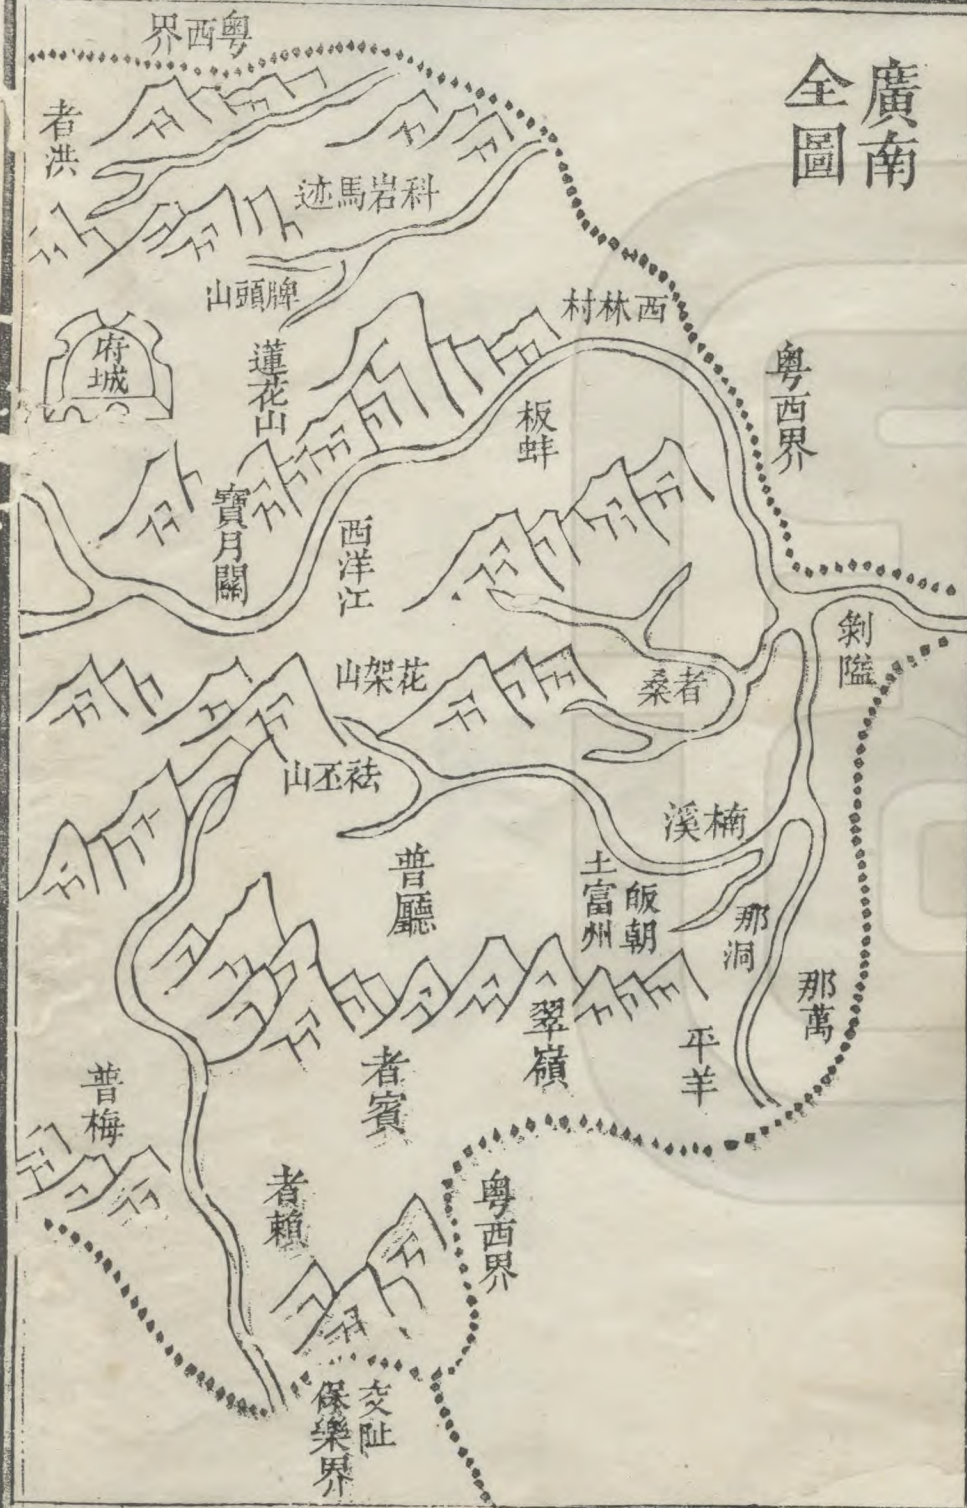 廣南
全圖
粤西界
者洪
科岩馬迹
牌頭山
西林村
府城
蓮花山
粤西界
板蚌
寶月關
西洋江
剝隘
花架山
者桑
祛丕山
楠溪
普廳
土富州
皈朝
那洞
那萬
翠嶺
平羊
者賓
普梅
者賴
粤西界
交阯
保樂界